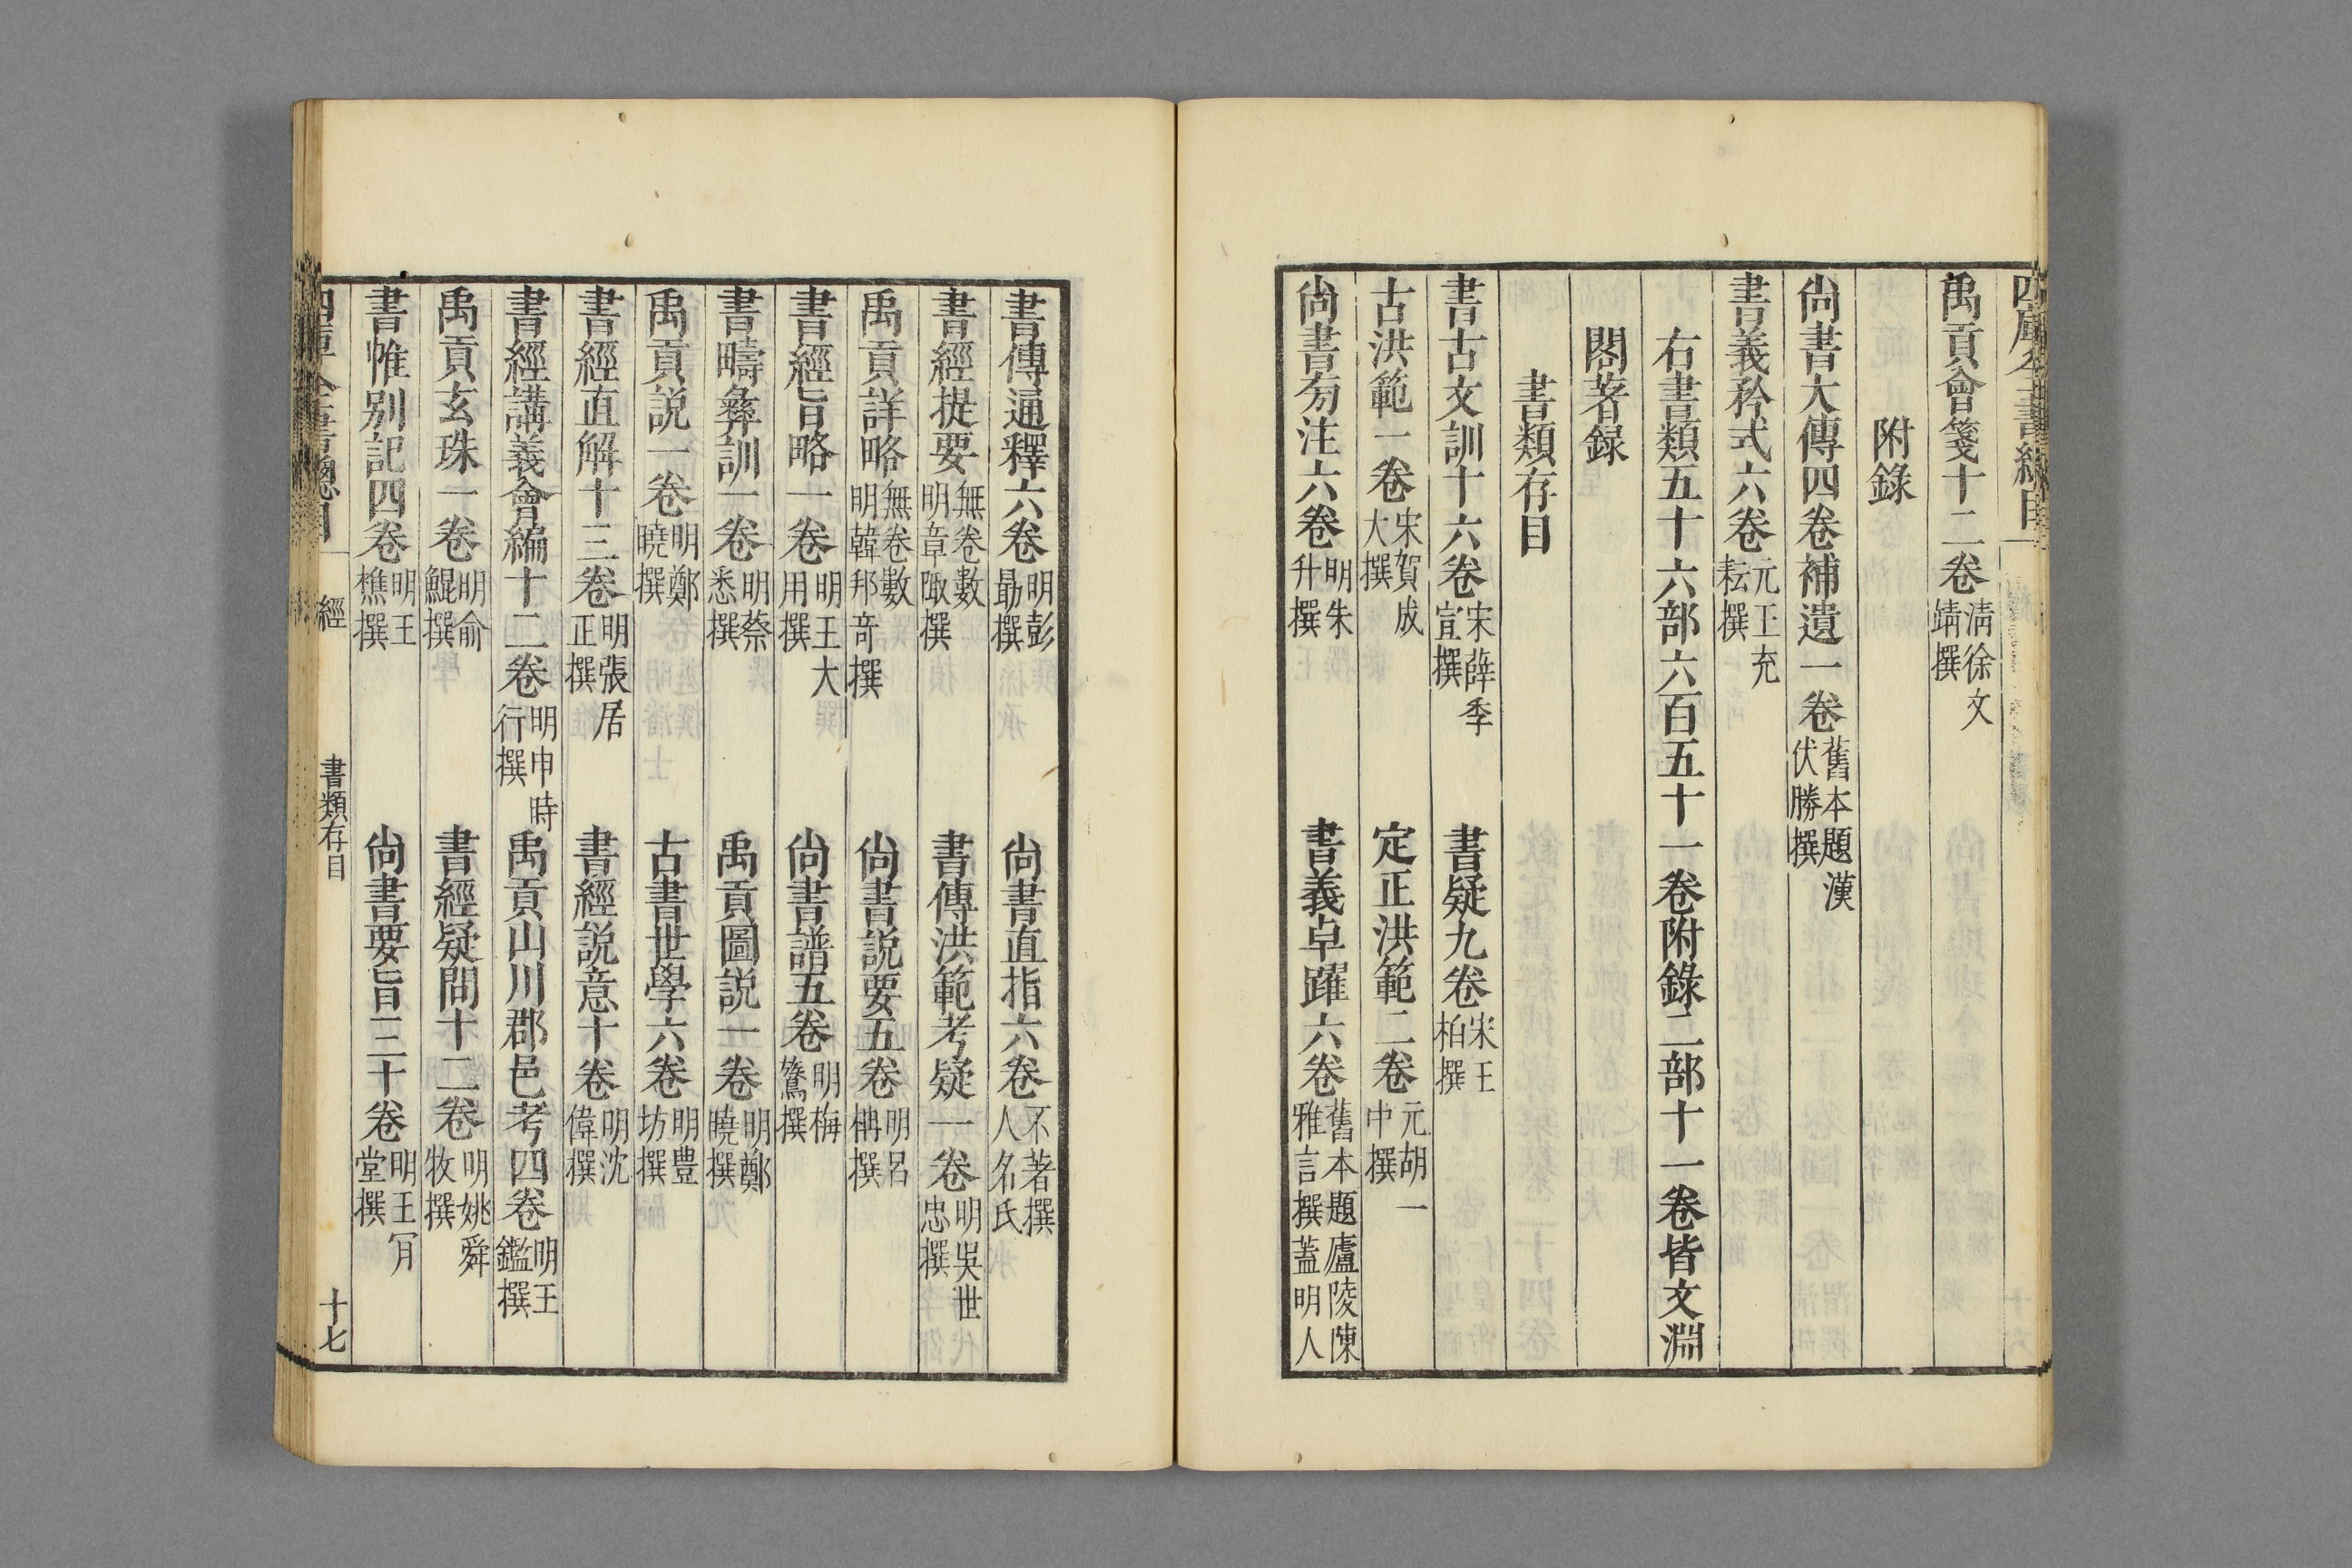 禹貢會箋十二卷 清徐文靖撰
附錄
尚書大傳四卷補遺一卷 舊本題漢伏勝撰
書義矜式六卷 元王充耘撰
右書類五十六部六百五十一卷附錄二部十一卷皆文淵
閣著録
書類存目
書古文訓十六卷 宋薛季宣撰 書疑九卷 宋王柏撰
古洪範一卷 宋賀成大撰 定正洪範二卷 元胡一中撰
尚書旁注六卷 明朱升撰 書義卓躍六卷 舊本題廬陵陳雅言撰蓋明人
書傳通釋六卷 明彭勗撰 尚書直指六卷 不著撰人名氏
書經提要 無卷數明章陬撰 書傳洪範考疑一卷 明吳世忠撰
禹貢詳略 無卷數明韓邦奇撰 尚書説要五卷 明呂柟撰
書經旨略一卷 明王大用撰 尚書譜五卷 明梅鷟撰
書疇彝訓一卷 明蔡悉撰 禹貢圖説一卷 明鄭曉撰
禹貢説一卷 明鄭曉撰 古書世學六卷 明豊坊撰
書經直解十三卷 明張居正撰 書經説意十卷 明沈偉撰
書經講義會編十二卷 明申時行撰 禹貢山川郡邑考四卷 明王鑑撰
禹貢玄珠一卷 明俞鯤撰 書經疑問十二卷 明姚舜牧撰
書帷别記四卷 明王樵撰 尚書要旨三十卷 明王肎堂撰
四庫全書總目 經 書類存目 十七